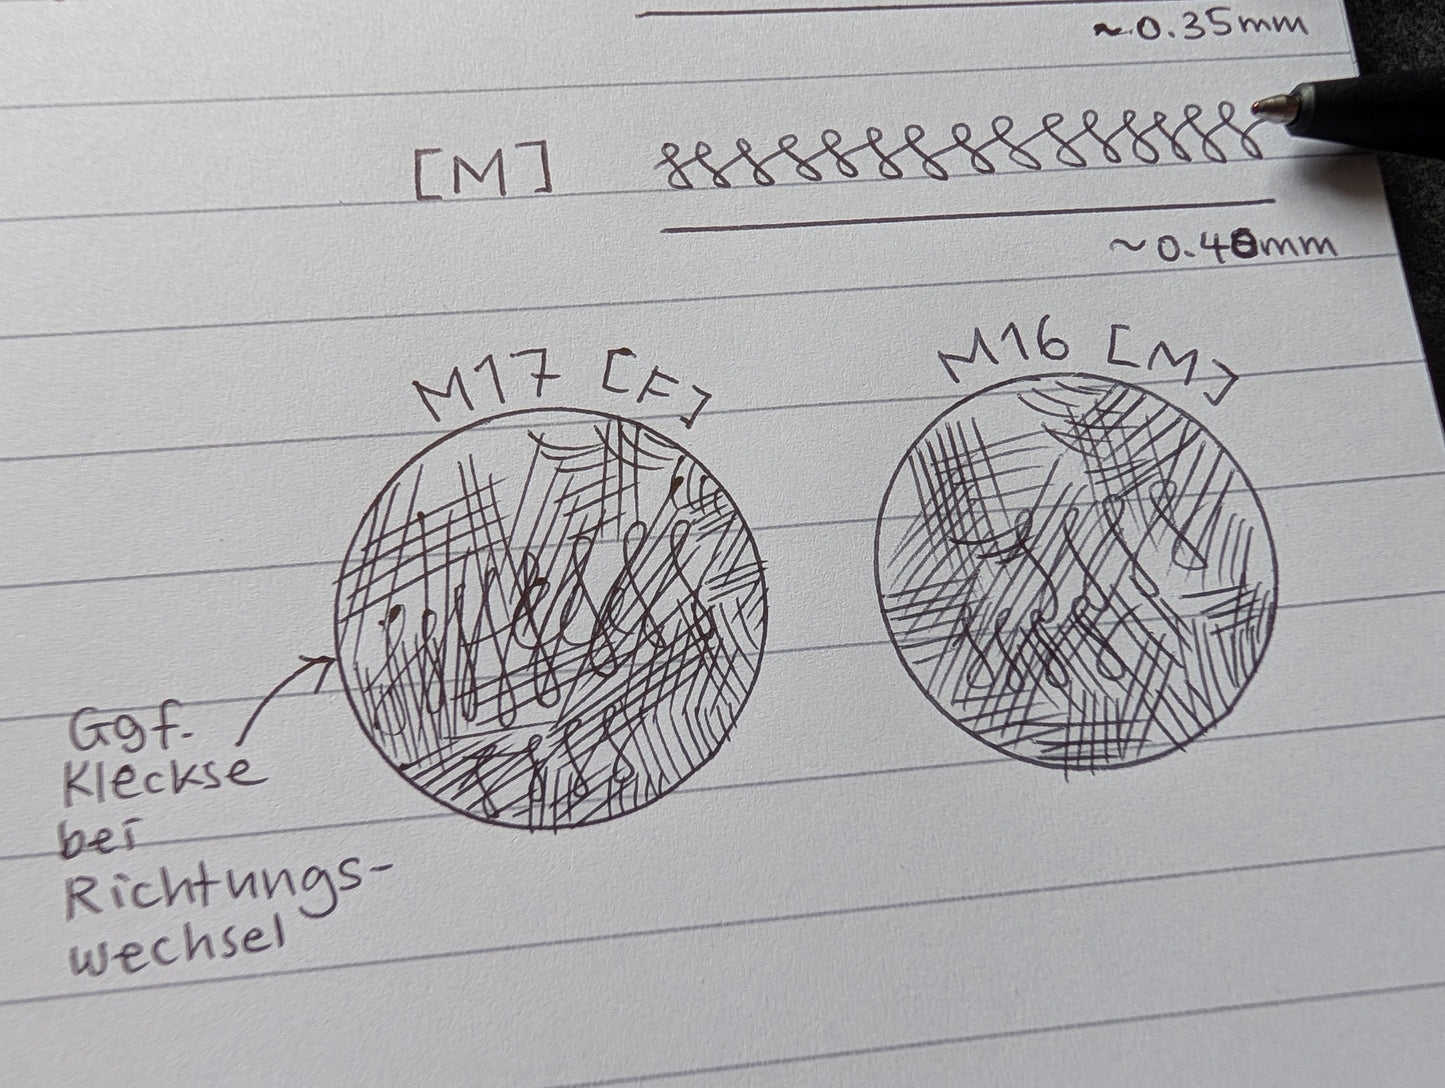 ~0.35mm
[M]
~0.40mm
M17 [F]
M16 [M]
Ggf.
Kleckse
bei
Richtungs-
wechsel